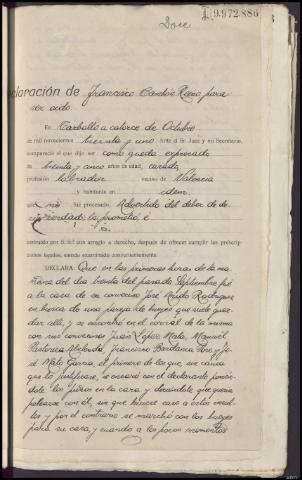 Doce
L9.972.886
claración de Francisco Cancho Raro para
ser oido.
En Carballo a catorce de Octubre
de mil novecientos treinta y uno Ante el Sr. Juez y su Secretario,
compareció el que dijo ser como queda expresado
de treinta y cinco años de edad, casado
profesión labrador vecino de Valencia
y habitante en idem
que no fué procesado. Advertido del deber de de-
cir verdad, lo prometió é
instruido por S. Sª con arreglo a derecho, después de ofrecer cumplir las prescrip-
ciones legales, siendo examinado convenientemente
DECLARA: Que en las primeras horas de la ma-
ñana del dia treinta del pasado Septiembre fué
a la casa de su convecino José Mato Rodriguez
en busca de una pareja de bueyes que suele guar-
dar alli, y se encontró en el corral de la misma
con sus convecinos Juan López Mato, Manuel
Francisco y Jo-
sé Mato Garcia, el primero de los que, sin causa
que lo justificase, se encaró con el declarante ponién-
dole los puños en la cara y diciéndole que queria
pelearse con él, sin que hiciese caso a estos insul-
tos y por el contrario se marchó con los bueyes
para su casa, y cuando a los pocos momentos